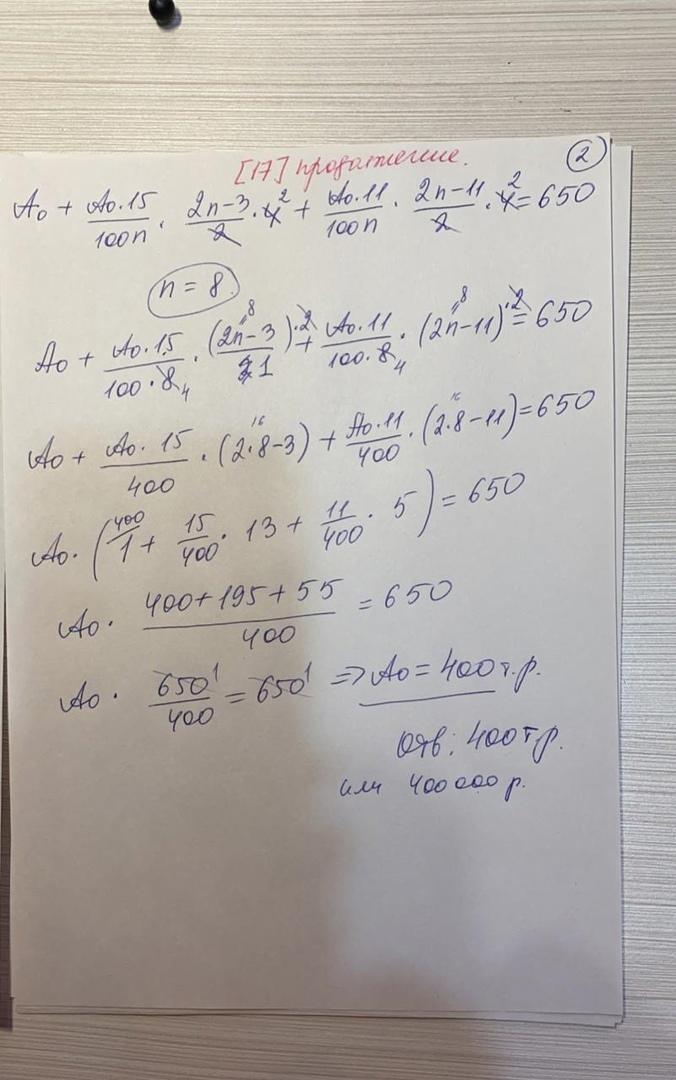 [17] продолжение. 2
A₀ + A₀·15/100n · 2n-3/2 · 4² + A₀·11/100n · 2n-11/2 · 4² = 650
n = 8
A₀ + A₀·15/100·8₄ · (2n-3/1)·2 + A₀·11/100·8₄ · (2n-11)·2 = 650
A₀ + A₀·15/400 · (2·8-3) + A₀·11/400 · (2·8-11) = 650
A₀ · (400/1 + 15/400 · 13 + 11/400 · 5) = 650
A₀ · 400+195+55/400 = 650
A₀ · 650¹/400 = 650¹ => A₀ = 400т.р.
Отв: 400т.р.
или 400000 р.